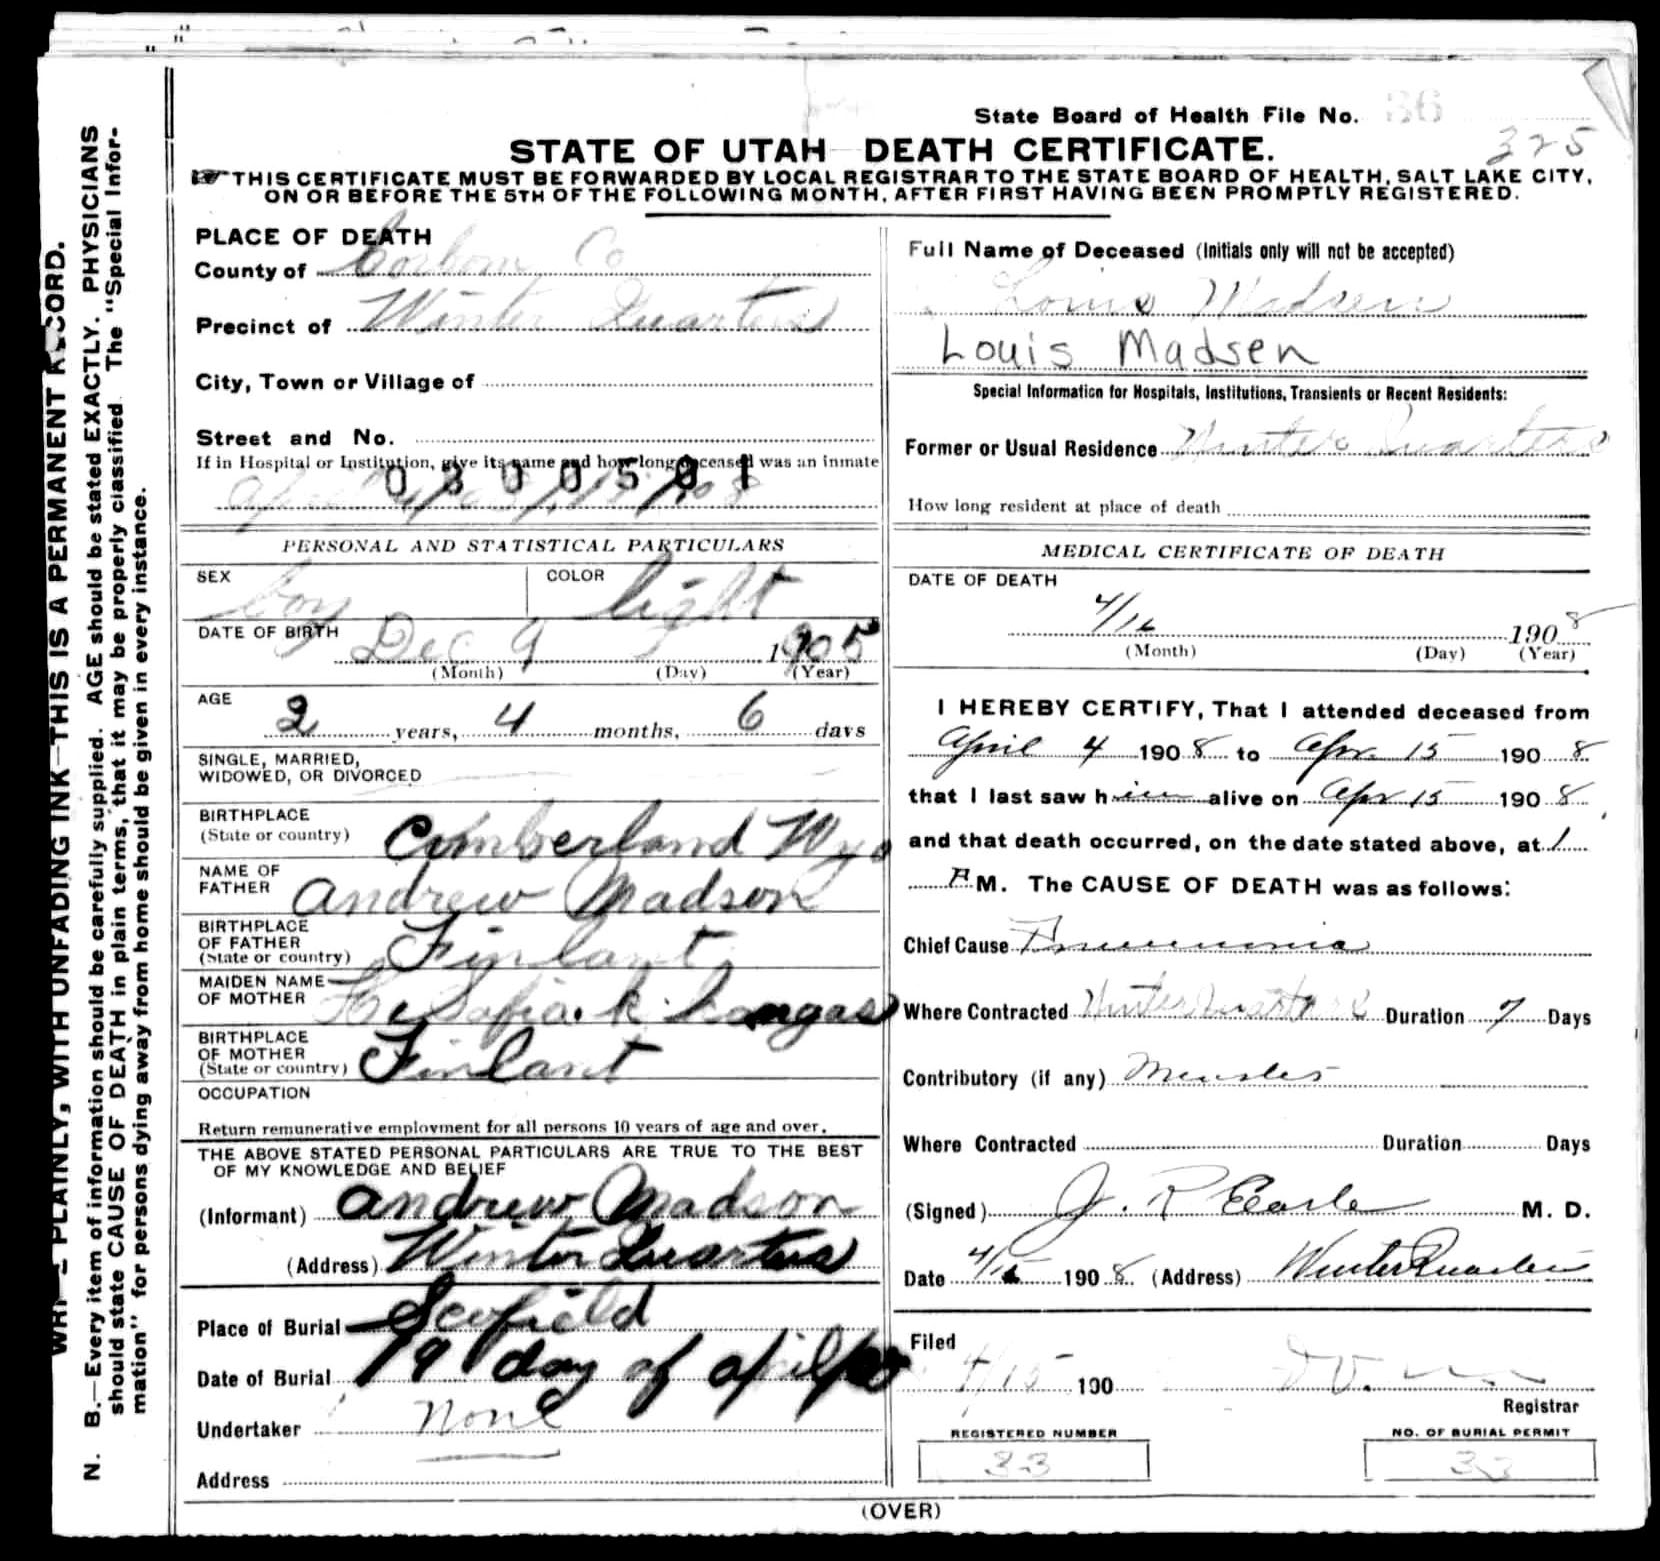 State Board of Health File No. 36
325
STATE OF UTAH DEATH CERTIFICATE.
THIS CERTIFICATE MUST BE FORWARDED BY LOCAL REGISTRAR TO THE STATE BOARD OF HEALTH, SALT LAKE CITY,
ON OR BEFORE THE 5TH OF THE FOLLOWING MONTH, AFTER FIRST HAVING BEEN PROMPTLY REGISTERED.
WRITE PLAINLY, WITH UNFADING INK—THIS IS A PERMANENT RECORD.
N. B.—Every item of information should be carefully supplied. AGE should be stated EXACTLY. PHYSICIANS
should state CAUSE OF DEATH in plain terms, that it may be properly classified. The "Special Infor-
mation" for persons dying away from home should be given in every instance.
PLACE OF DEATH
County of Corbon Co
Precinct of Winter Quarters
City, Town or Village of
Street and No.
If in Hospital or Institution, give its name and how long deceased was an inmate
0300501
PERSONAL AND STATISTICAL PARTICULARS
SEX boy COLOR light
DATE OF BIRTH
Dec 9 1905
(Month) (Day) (Year)
AGE
2 years, 4 months, 6 days
SINGLE, MARRIED,
WIDOWED, OR DIVORCED
BIRTHPLACE
(State or country) Cumberland Wyo
NAME OF
FATHER Andrew Madson
BIRTHPLACE
OF FATHER
(State or country) Finlant
MAIDEN NAME
OF MOTHER Sofia k
BIRTHPLACE
OF MOTHER
(State or country) Finlant
OCCUPATION
Return remunerative employment for all persons 10 years of age and over.
THE ABOVE STATED PERSONAL PARTICULARS ARE TRUE TO THE BEST
OF MY KNOWLEDGE AND BELIEF
(Informant) Andrew Madson
(Address) Winter Quarters
Place of Burial Scofield
Date of Burial 19 day of april
Undertaker None
Address
Full Name of Deceased (Initials only will not be accepted)
Louis Madsen
Louis Madsen
Special Information for Hospitals, Institutions, Transients or Recent Residents:
Former or Usual Residence Winter Quarters
How long resident at place of death
MEDICAL CERTIFICATE OF DEATH
DATE OF DEATH
4/16 1908
(Month) (Day) (Year)
I HEREBY CERTIFY, That I attended deceased from
April 4 1908 to Apr 15 1908
that I last saw him alive on Apr 15 1908,
and that death occurred, on the date stated above, at 1
A M. The CAUSE OF DEATH was as follows:
Chief Cause Pneumonia
Where Contracted Winter Quarters Duration 7 Days
Contributory (if any) Measles
Where Contracted Duration Days
(Signed) J. R Earle M. D.
Date 4/15 1908 (Address) Winter Quarters
Filed
4/15 190
Registrar
REGISTERED NUMBER
33
NO. OF BURIAL PERMIT
33
(OVER)